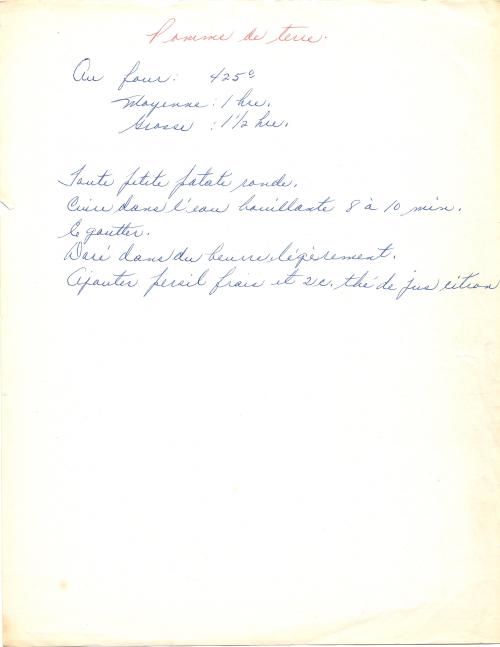 Pomme de terre.
Au four: 425°
Moyenne: 1 hre.
Grosse : 1 1/2 hre.
Toute petite patate ronde.
Cuire dans l'eau bouillante 8 à 10 min.
Egoutter.
Doré dans du beurre légèrement.
Ajouter persil frais et 2 c. thé de jus citron